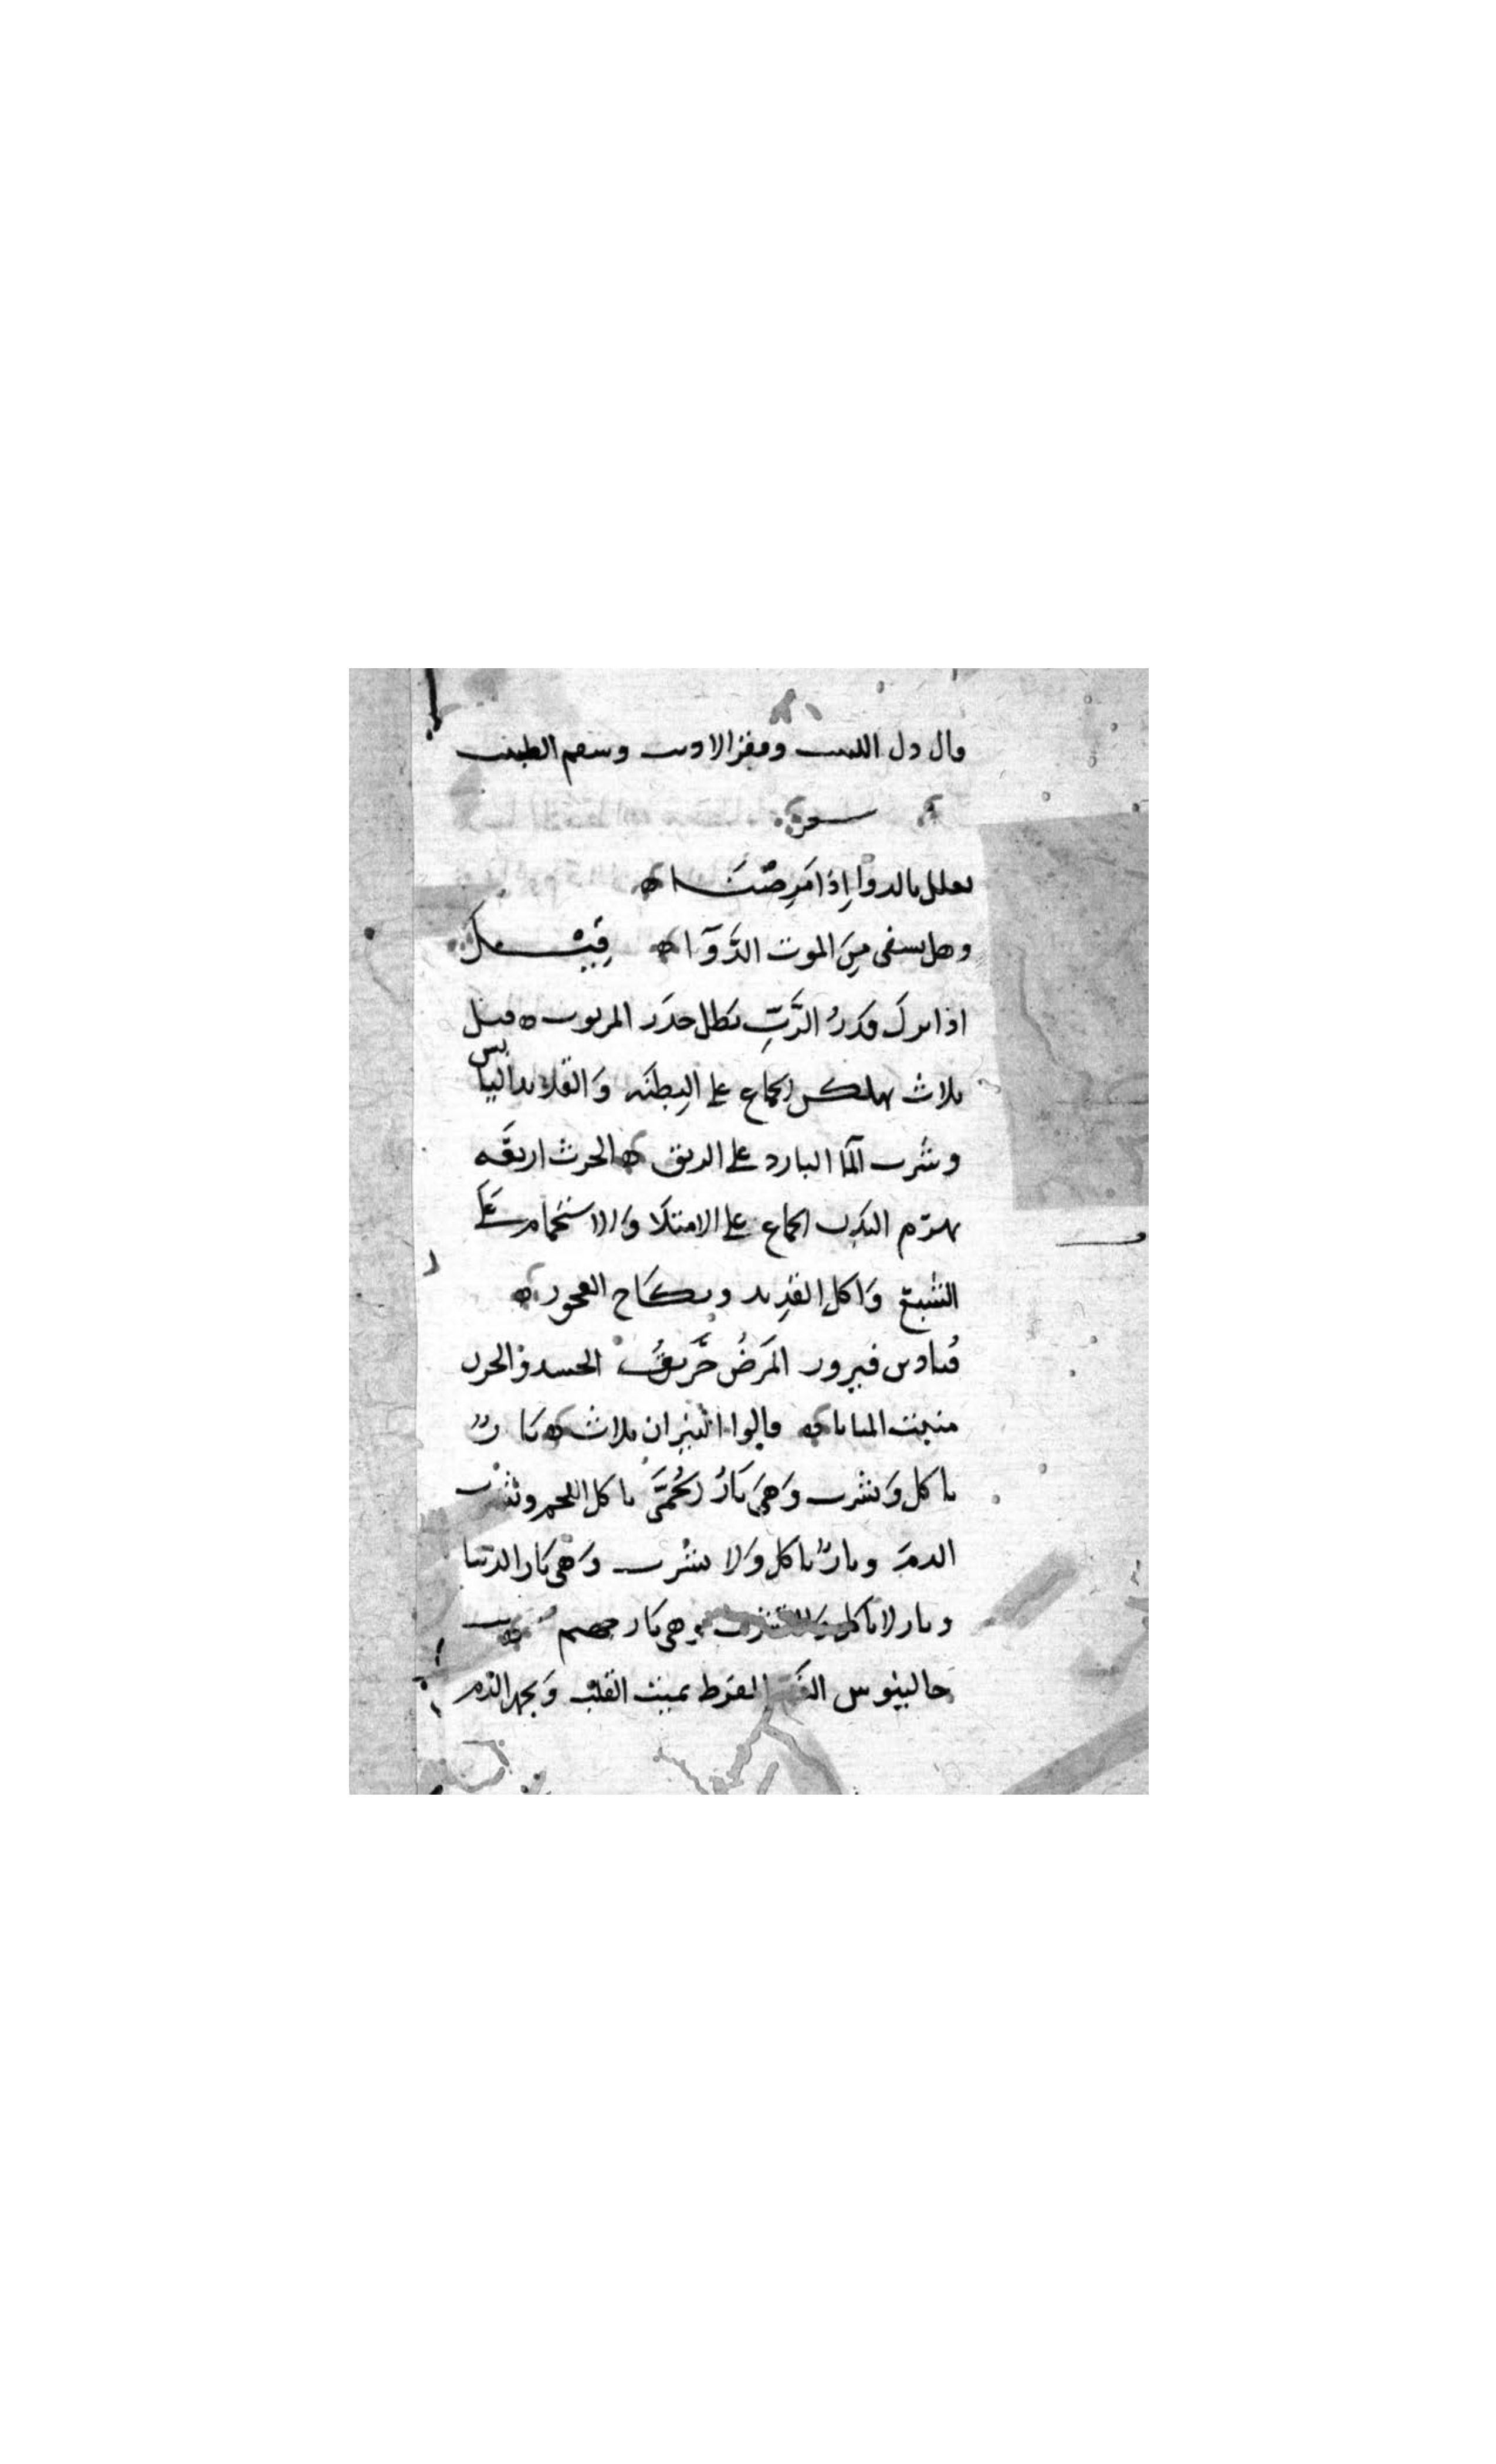 قال دل اللبيب وفقر الاديب وسقم الطبيب
شعر
تعلل بالدوا اِذا مَرِضتَ
وهل يشفى مِنَ الموت الدَّوَآ قِيْل
اذا نزل قدرُ الرَّبِّ بطل حذر المربوب قيل
ثلاث يهلكن الجماع على البِطنَه وَالقديد اليابس
وشرب المآ البارد على الريق الحرث اربعَه
يهزم البدن الجماع على الامتلا وَالاستحمام عَلَى
الشبع وَاكل القدِيد ونِكَاح العجوز
فيروز المَرَضُ حَرِيقُ الحسد وَالحزن
المنايا قالوا النيران ثلاث نَارٌ
تاكل وَتشرب وَهِيَ نَارُ الحُمَّى تاكل اللحم وتشرب
الدم ونارٌ تاكل وَلا تشرب وَهى نَار الدنيا
ونار لا تاكل وَلا تشرب وهى نَار جهنم
جالينوس المفرط يميت القلب وَيجمد الدم